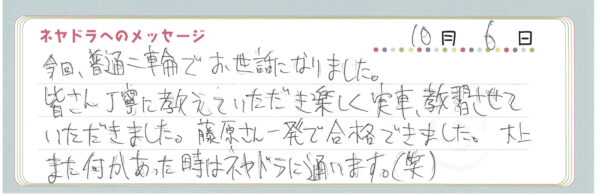 ネヤドラへのメッセージ
10月 6日
今回、普通二輪でお世話になりました。
皆さん丁寧に教えていただき楽しく実車、教習させて
いただきました。藤原さん一発で合格できました。
また何かあった時はネヤドラに通います。(笑)